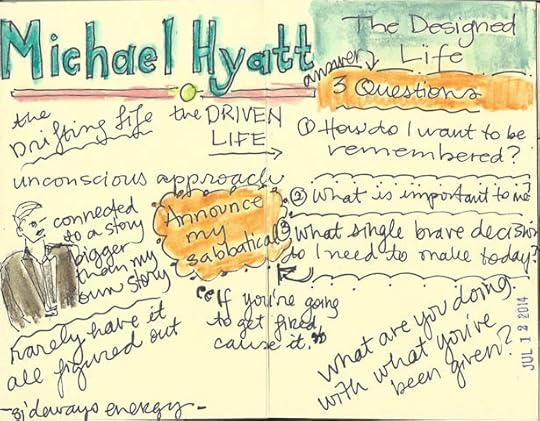 Michael Hyatt
the
Drifting Life
the DRIVEN
LIFE
unconscious approach
connected
to a story
bigger
than my
own story
Announce
my
sabbatical
"If you're going
to get fired,
cause it."
rarely have it
all figured out
-sideways energy-
The Designed
Life
answer
3 Questions
① How do I want to be
remembered?
② What is important to me?
③ What single brave decision
do I need to make today?
What are you doing
with what you've
been given?
JUL 12 2014